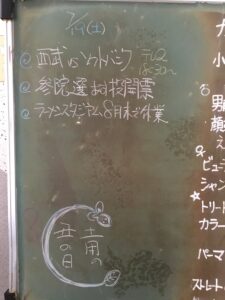 7/19(土)
西武 vs ソフトバンク テレ玉
18:30〜
参院選 投開票
ラーメンスタジアム 8月末で休業
土用の
丑の日
小
男
顔
え
ビュー
シャン
トリート
カラー
パーマ
ストレート